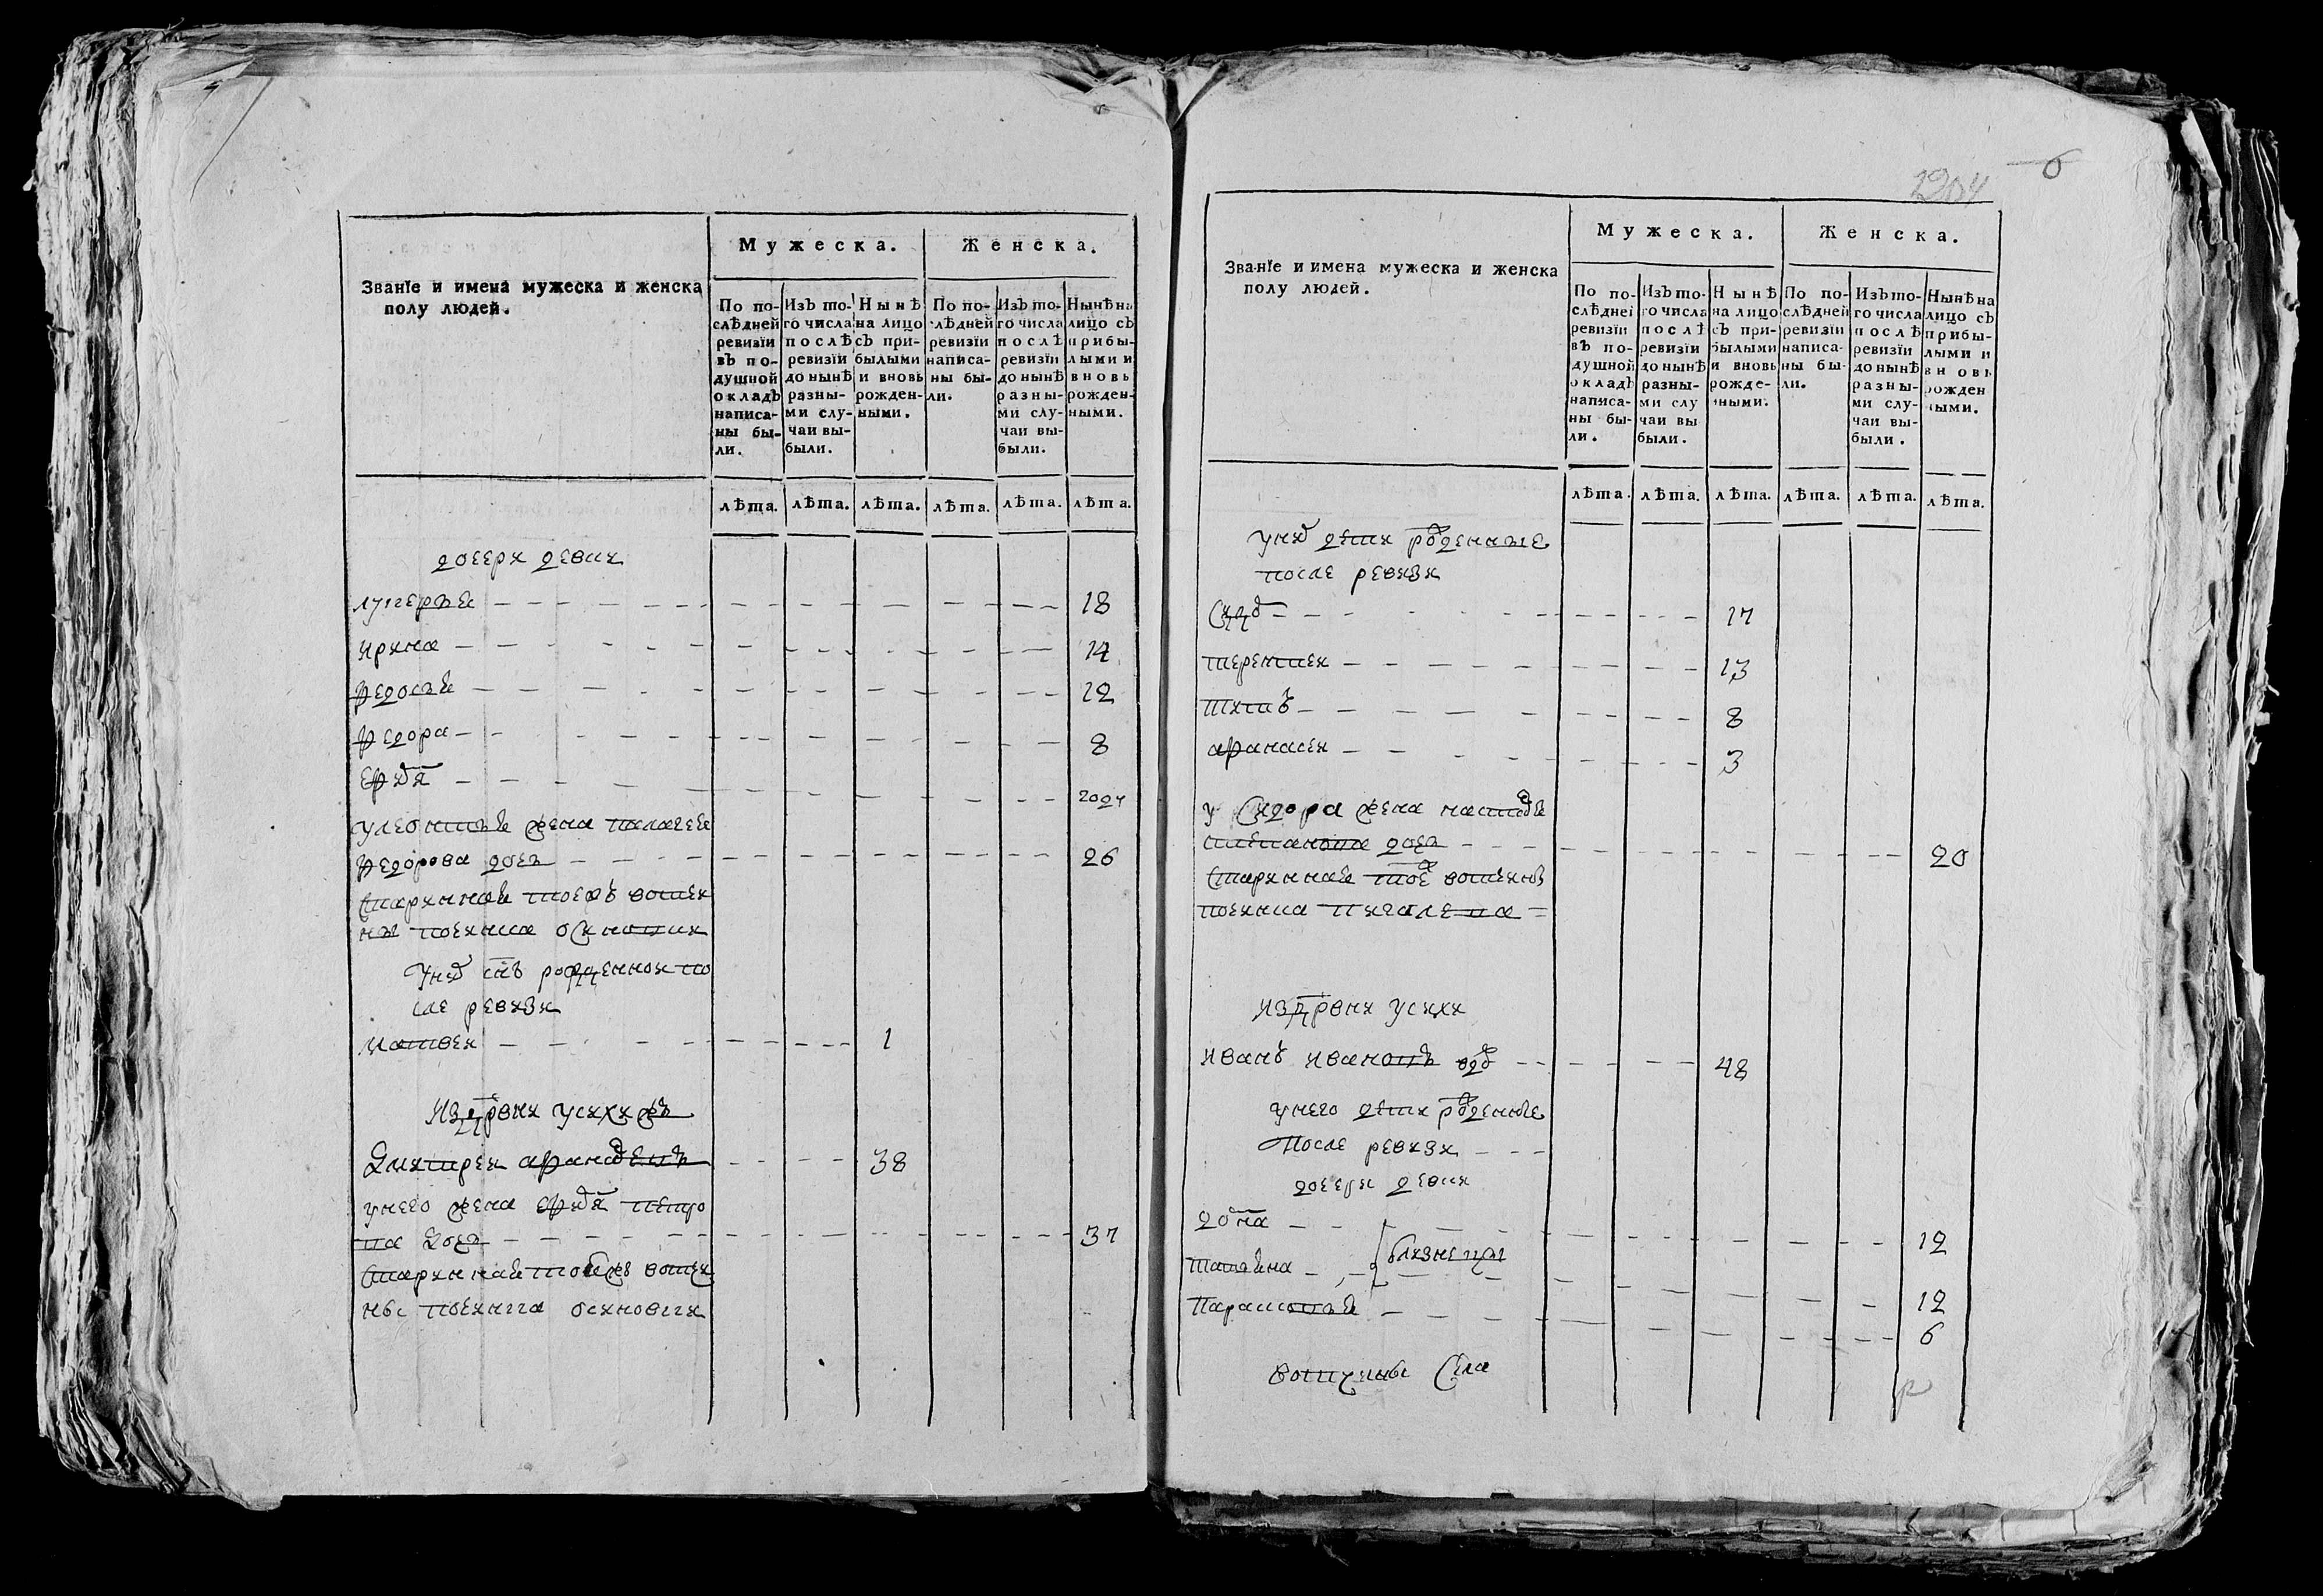 Званїе и имена мужеска и женска
полу людей.
Мужеска.
Женска.
По по-
слѣдней
ревизїи
въ по-
душной
окладъ
написа-
ны бы-
ли.
Изъ то-
го числа
послѣ
ревизїи
до нынѣ
разны-
ми слу-
чаи вы-
были.
Нынѣ
на лицо
съ при-
былыми
и вновь
рожден-
ными.
По по-
слѣдней
ревизїи
написа-
ны бы-
ли.
Изъ то-
го числа
послѣ
ревизїи
до нынѣ
разны-
ми слу-
чаи вы-
были.
Нынѣ на
лицо съ
прибы-
лыми и
вновь
рожден-
ными.
лѣта. лѣта. лѣта. лѣта. лѣта. лѣта.
дочери девки
лукерья 18
ирина 14
федосья 12
федора 8
године
улеонтья жена палагея
федорова дочь 26
старинная тоежъ вотчи
ны поехима
унихъ снъ рожденной по
сле ревизи
матвеи 1
из дрвни усихи
Дмитреи 38
унего жена петро
ва дочь 37
старинная тоежъ вотчи
ны
6
1204
Званїе и имена мужеска и женска
полу людей.
Мужеска.
Женска.
По по-
слѣдней
ревизїи
въ по-
душной
окладъ
написа-
ны бы-
ли.
Изъ то-
го числа
послѣ
ревизїи
до нынѣ
разны-
ми слу
чаи вы
были.
Нынѣ
на лицо
съ при-
былыми
и вновь
рожде-
нными.
По по-
слѣдней
ревизїи
написа-
ны бы-
ли.
Изъ то-
го числа
послѣ
ревизїи
до нынѣ
разны-
ми слу-
чаи вы-
были.
Нынѣ на
лицо съ
прибы-
лыми и
вновь
рожден
ными.
лѣта. лѣта. лѣта. лѣта. лѣта. лѣта.
унихъ дети рожденные
после ревизи
Сидоръ 17
терентеи 13
титъ 8
афанасеи 3
у Сидора жена настасья
степанова дочь 20
старинная тоежъ вотчины
из дрвни усихи
иванъ ивановъ вдовъ 48
унего дети рожденые
после ревизи
дочери девки
домна 12
татьяна близнецы 12
парасковья 6
вотчины села